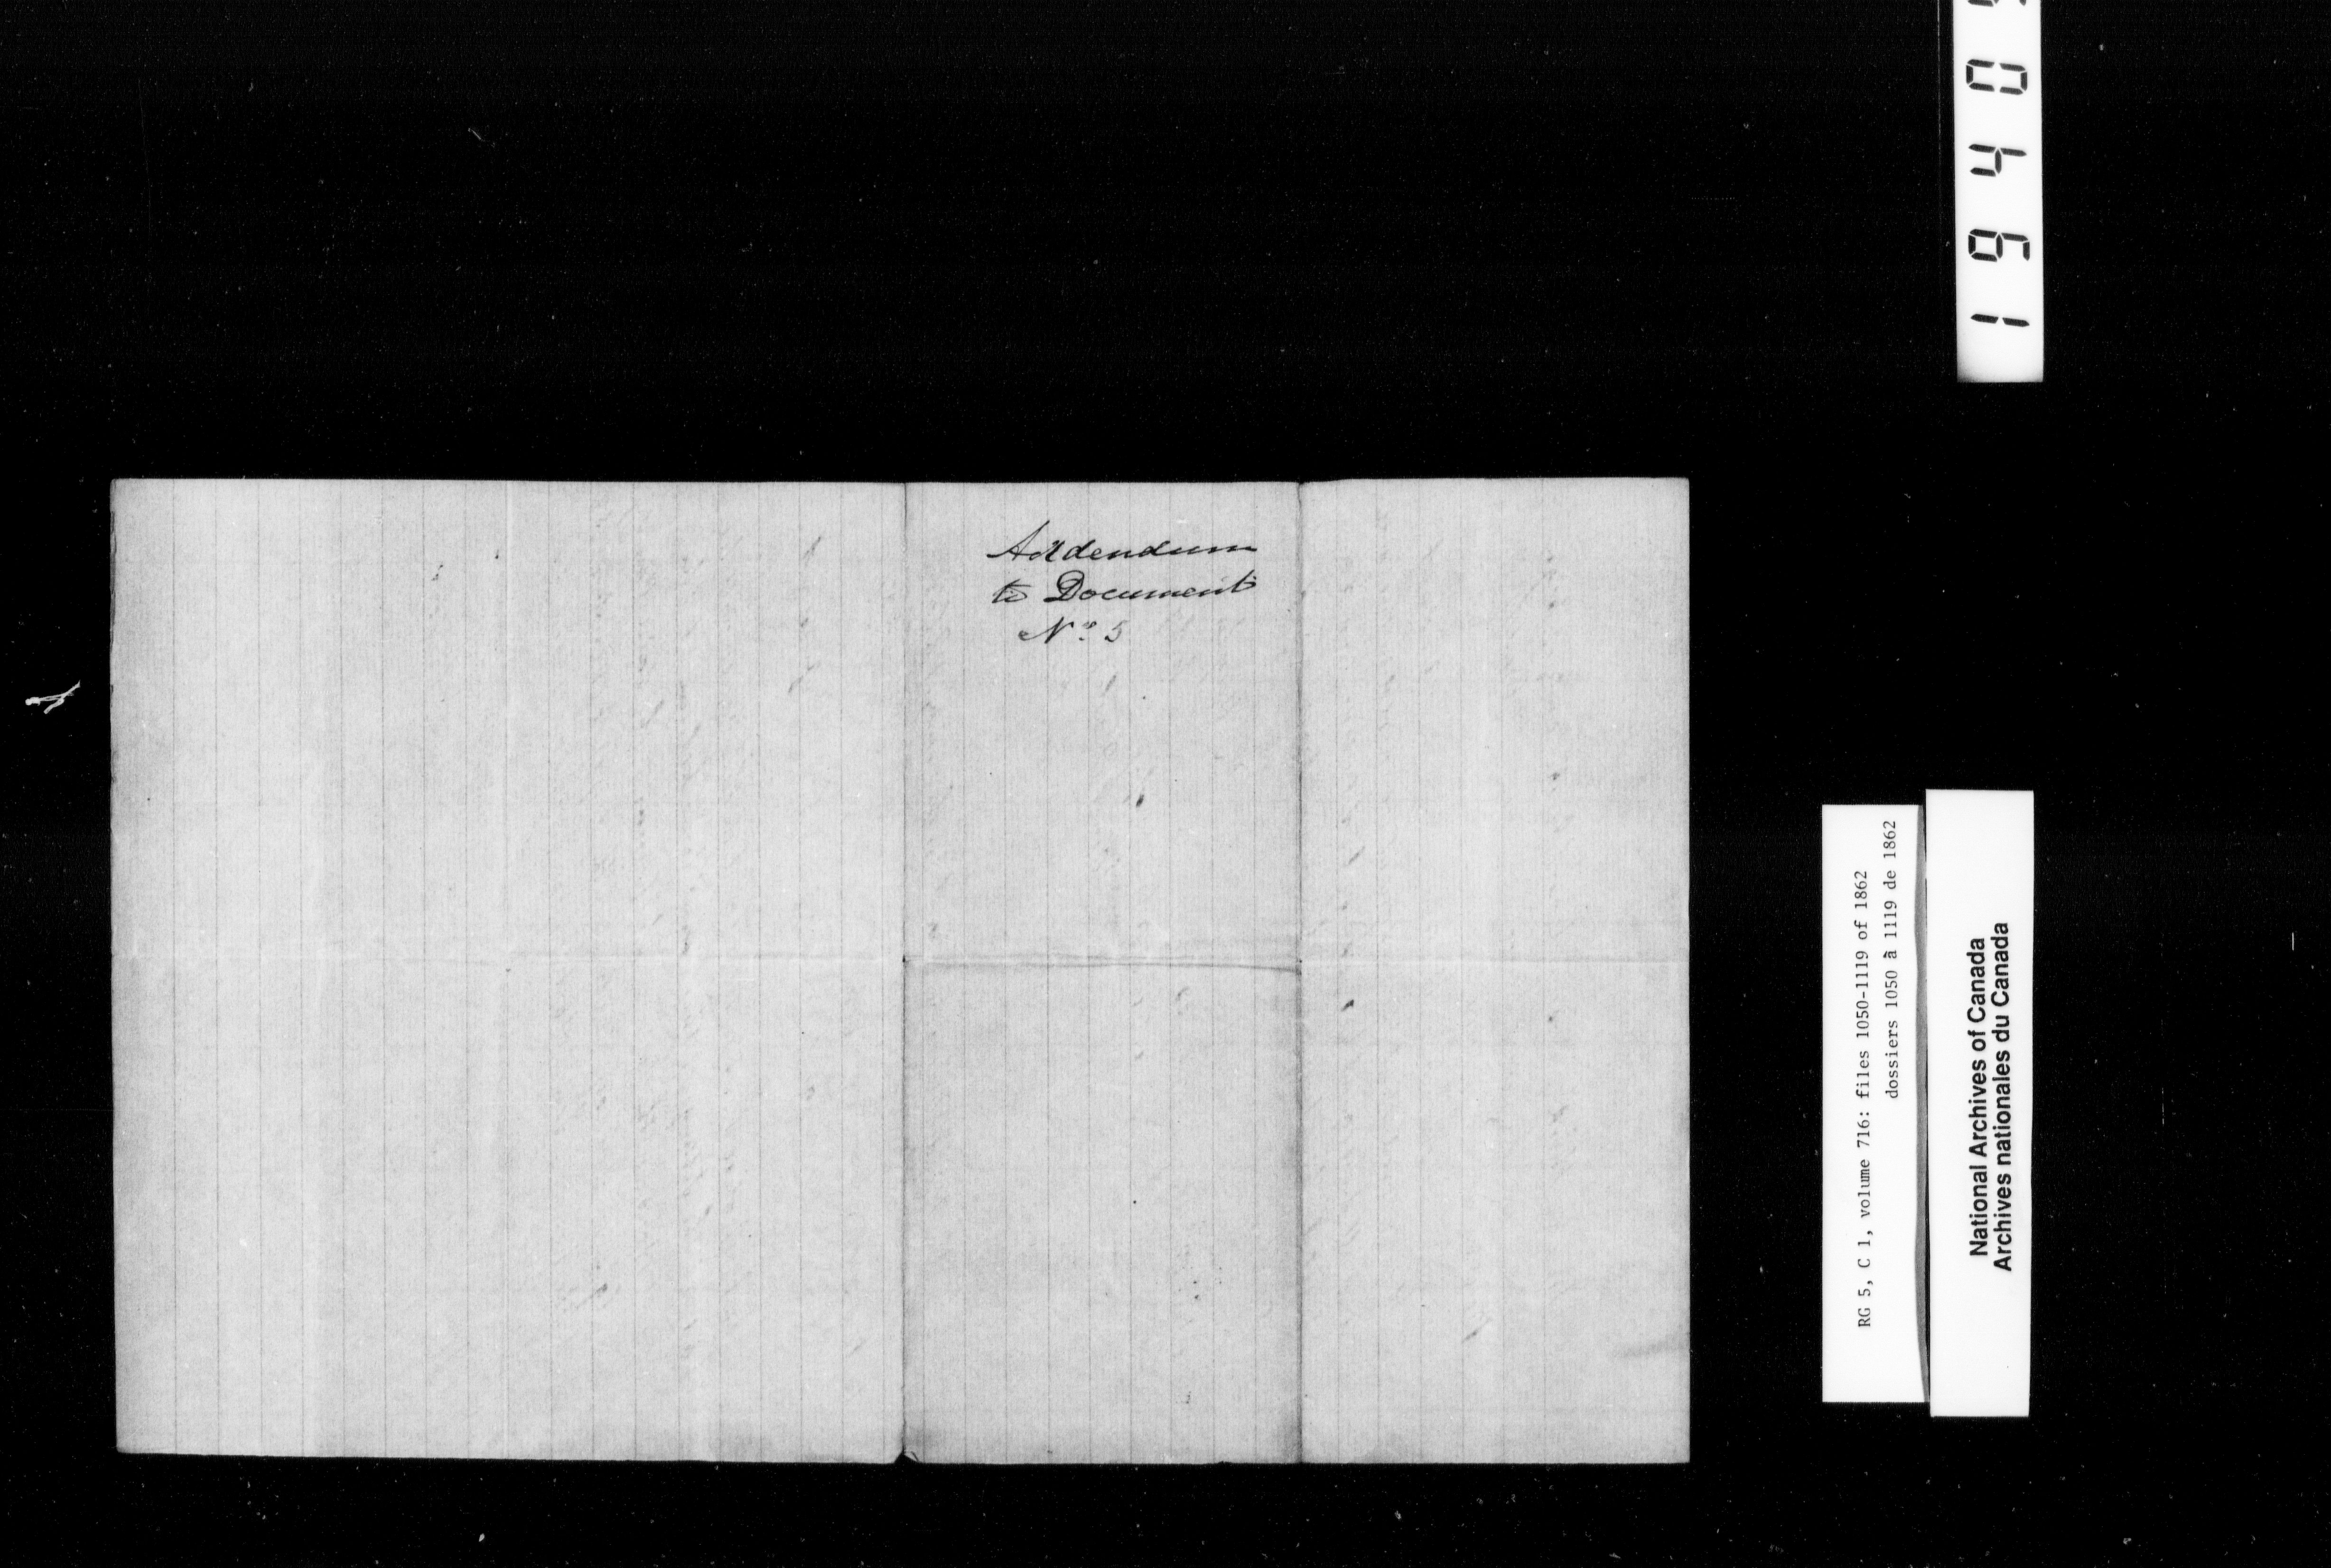 Addendum
to Document
No. 5
RG 5, C 1, volume 716: files 1050-1119 of 1862
dossiers 1050 à 1119 de 1862
National Archives of Canada
Archives nationales du Canada
1940